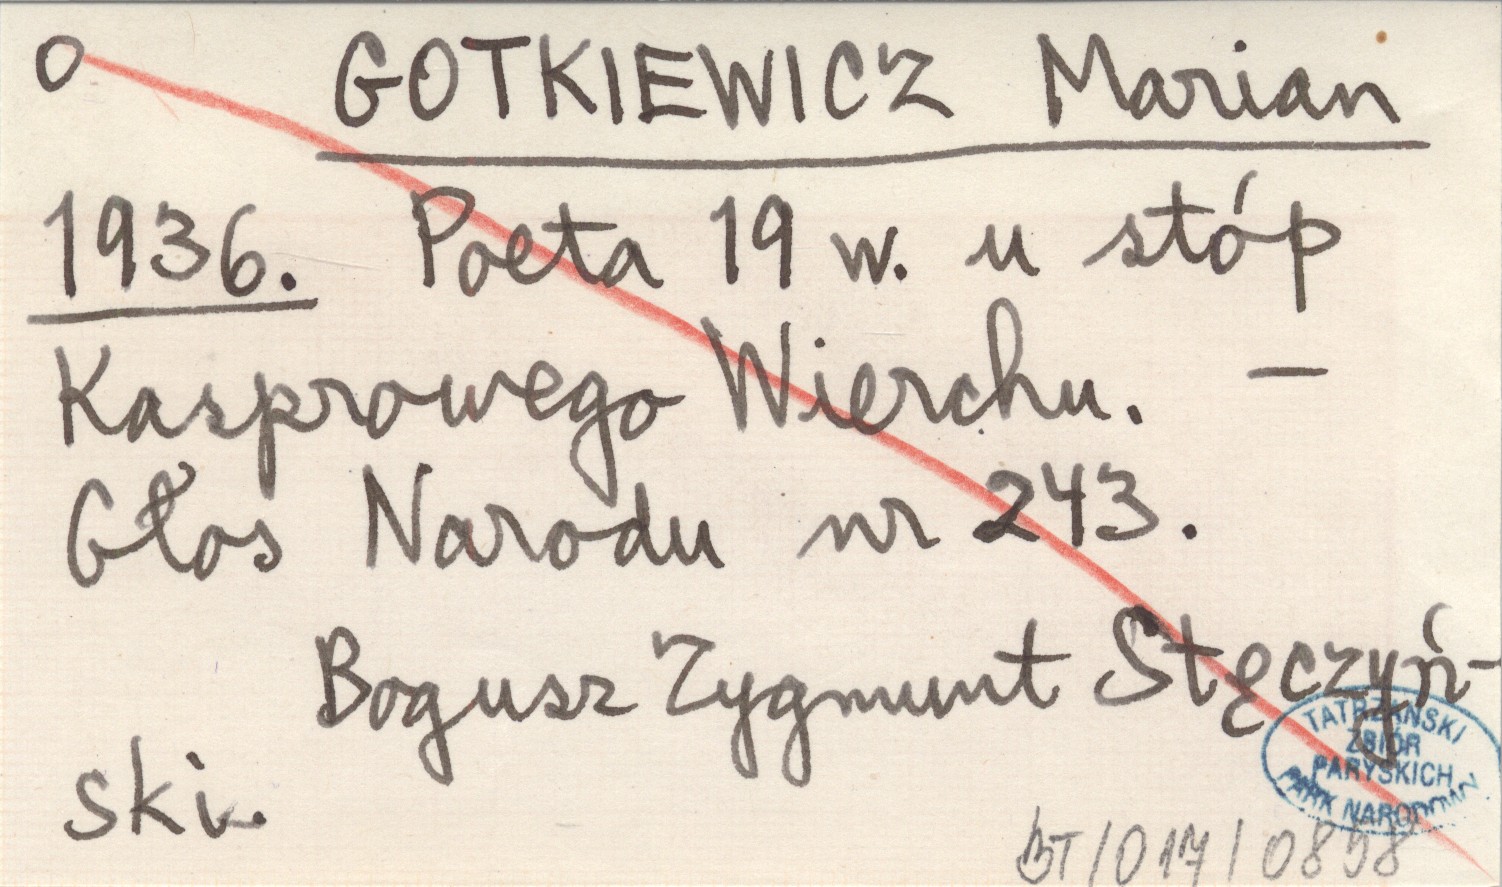 O GOTKIEWICZ Marian
1936. Poeta 19 w. u stóp
Kasprowego Wierchu. —
Głos Narodu nr 243.
Bogusz Zygmunt Stęczyń-
ski.
TATRZAŃSKI
ZBIÓR
PARYSKICH
PARK NARODOWY
BT/017/0898